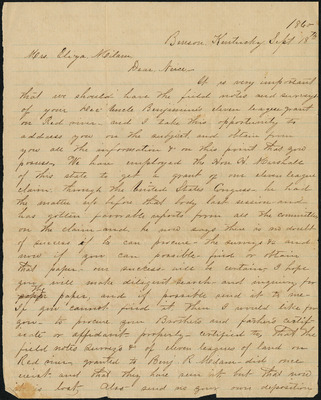 1860
Benson Kentucky Sept 18th
Mrs. Eliza Milam
Dear Niece.
It is very important
that we should have the field notes and surveys
of your Dec Uncle Benjamin's eleven league grant
on Red river and I take this opportunity to
address you on the subject and obtain from
you all the information & on this point that you
possess. We have employed the Hon. H. Marshall
of this state to get a grant of our eleven league
claim through the United States Congress he had
the matter up before that body last session and
has gotten favorable reports from all the committees
on the claim and he now says there is no doubt
of success if he can procure the surveys & and
now if you can possible find or obtain
that paper our success will be certain I hope
you will make diligent search and inquiry for
the paper, and if possible send it to me
If you cannot find it then I would like for
you to procure your Brothers and father's
affidavit properly certified to that the
field notes surveys & of eleven leagues of land on
Red river granted to Benj. R. Milam did once
exist and that they have seen it but that now
it is lost. Also send us your own deposition